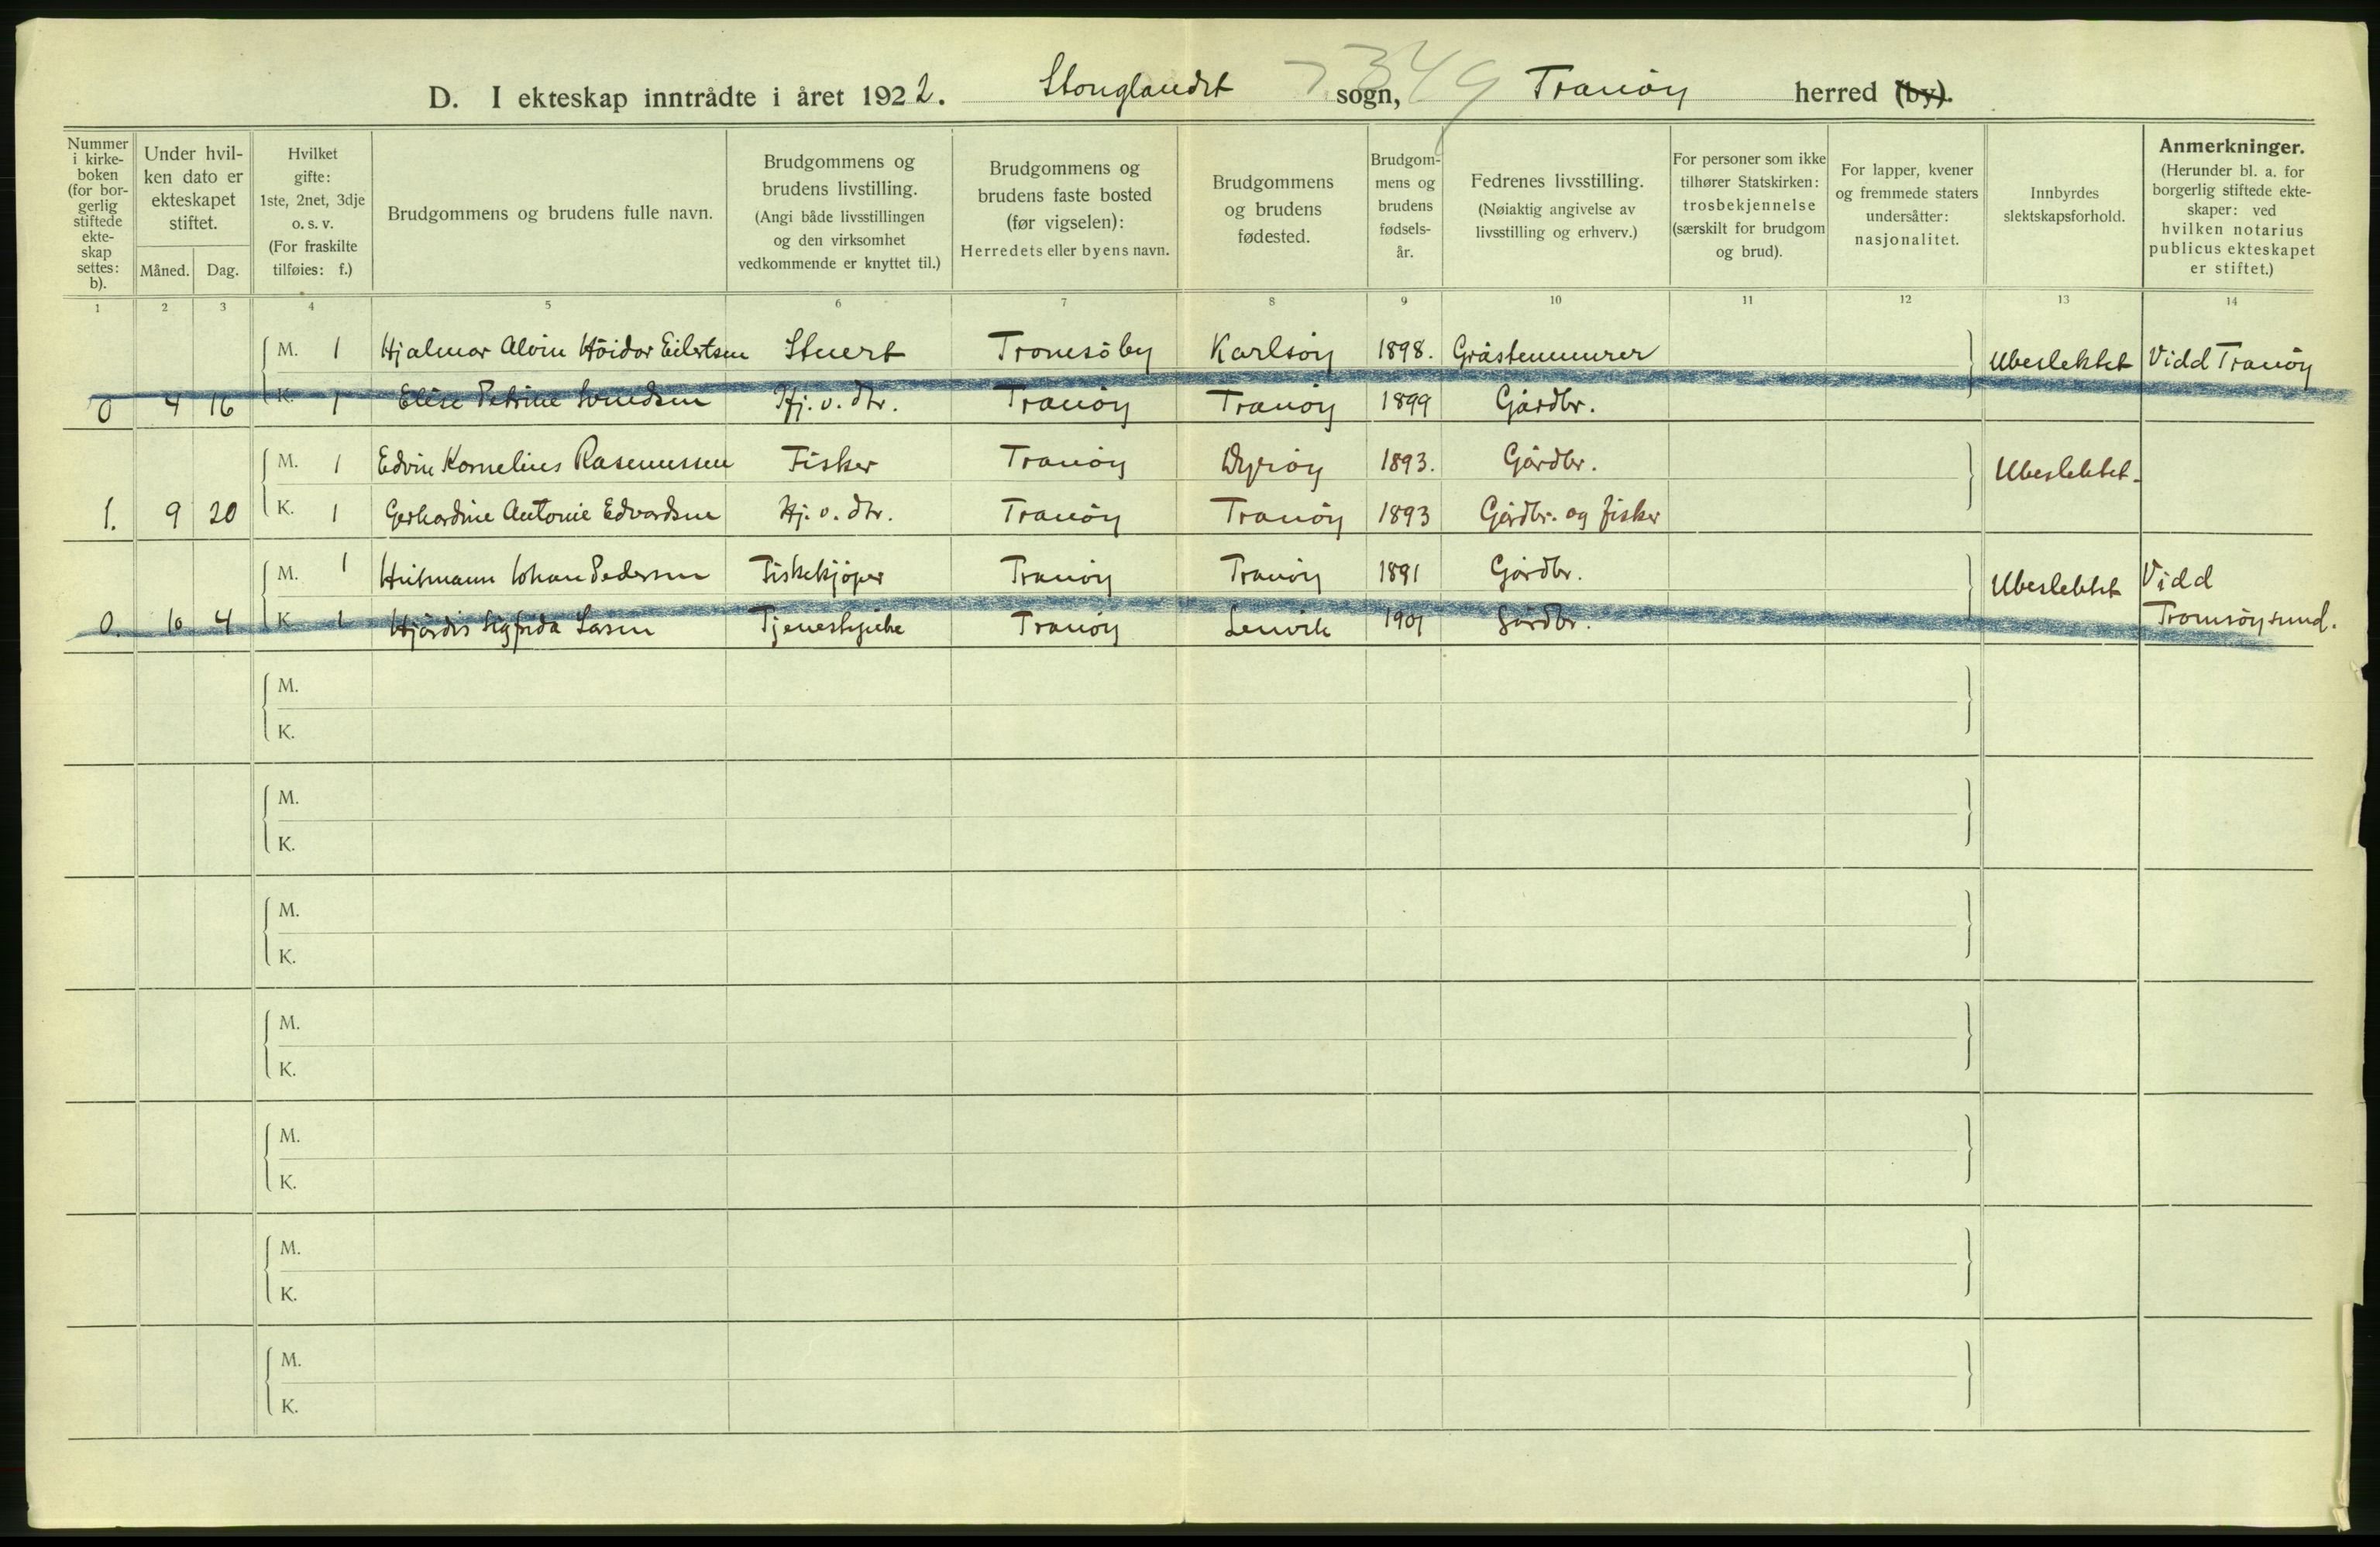 7349
D. I ekteskap inntrådte i året 1922. Stonglandet sogn, Tranöy herred (by).
Nummer i kirke-boken (for bor-gerlig stiftede ekte-skap settes: b).
Under hvil-ken dato er ekteskapet stiftet.
Måned. Dag.
Hvilket gifte: 1ste, 2net, 3dje o. s. v. (For fraskilte tilføies: f.)
Brudgommens og brudens fulle navn.
Brudgommens og brudens livstilling. (Angi både livsstillingen og den virksomhet vedkommende er knyttet til.)
Brudgommens og brudens faste bosted (før vigselen): Herredets eller byens navn.
Brudgommens og brudens fødested.
Brudgom-mens og brudens fødsels-år.
Fedrenes livsstilling. (Nøiaktig angivelse av livsstilling og erhverv.)
For personer som ikke tilhører Statskirken: trosbekjennelse (særskilt for brudgom og brud).
For lapper, kvener og fremmede staters undersåtter: nasjonalitet.
Innbyrdes slektskapsforhold.
Anmerkninger. (Herunder bl. a. for borgerlig stiftede ekte-skaper: ved hvilken notarius publicus ekteskapet er stiftet.)
1 2 3 4 5 6 7 8 9 10 11 12 13 14
M. 1 Hjalmar Alvin Höidar Eilertsen Stuert Tromsö by Karlsöy 1898. Gråstenmurer Ubeslektet Vidd Tranöy
0 4 16 K. 1 Elise Petrine Svendsen Hj. v. dtr. Tranöy Tranöy 1899 Gårdbr.
M. 1 Edvin Kornelius Rasmussen Fisker Tranöy Dyröy 1893. Gårdbr. Ubeslektet.
1. 9 20 K. 1 Gerhardine Antonie Edvardsen Hj. v. dtr. Tranöy Tranöy 1893 Gårdbr. og fisker
M. 1 Johan Pedersen Fiskekjöper Tranöy Tranöy 1891 Gårdbr. Ubeslektet Vidd
0. 10 4 K. 1 Hjördis Sigfrida Larsen Tjenestepike Tranöy Lenvik 1901 Gårdbr. Tromsöysund.
M.
K.
M.
K.
M.
K.
M.
K.
M.
K.
M.
K.
M.
K.